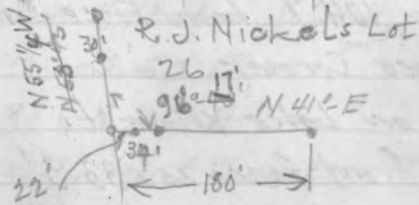 R. J. Nickels Lot
N 55 1/4 W
30'
26
96° 17'
N 41°-E
34'
22'
180'